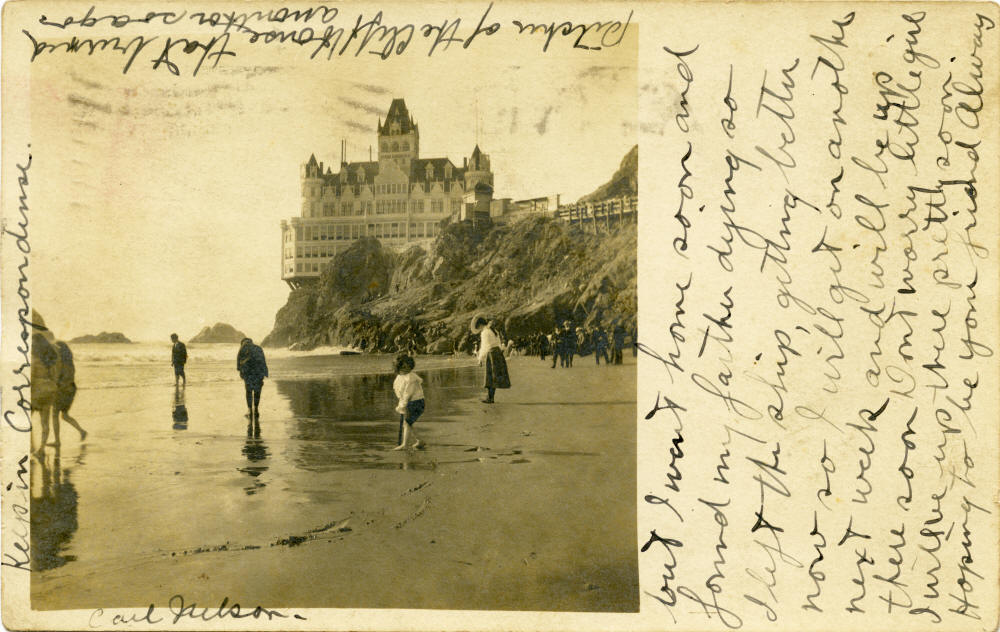 Pitcher of the Cliff House that burned
a monther so ago.
Keep in Correspondense.
but I went home soon and
found my father dying so
I left the ship, getting better
now so I will get on another
next week and will be up
there soon Dont worry little girl
I will be up there pretty soon.
Hoping to be your friend always
Carl Nelson.